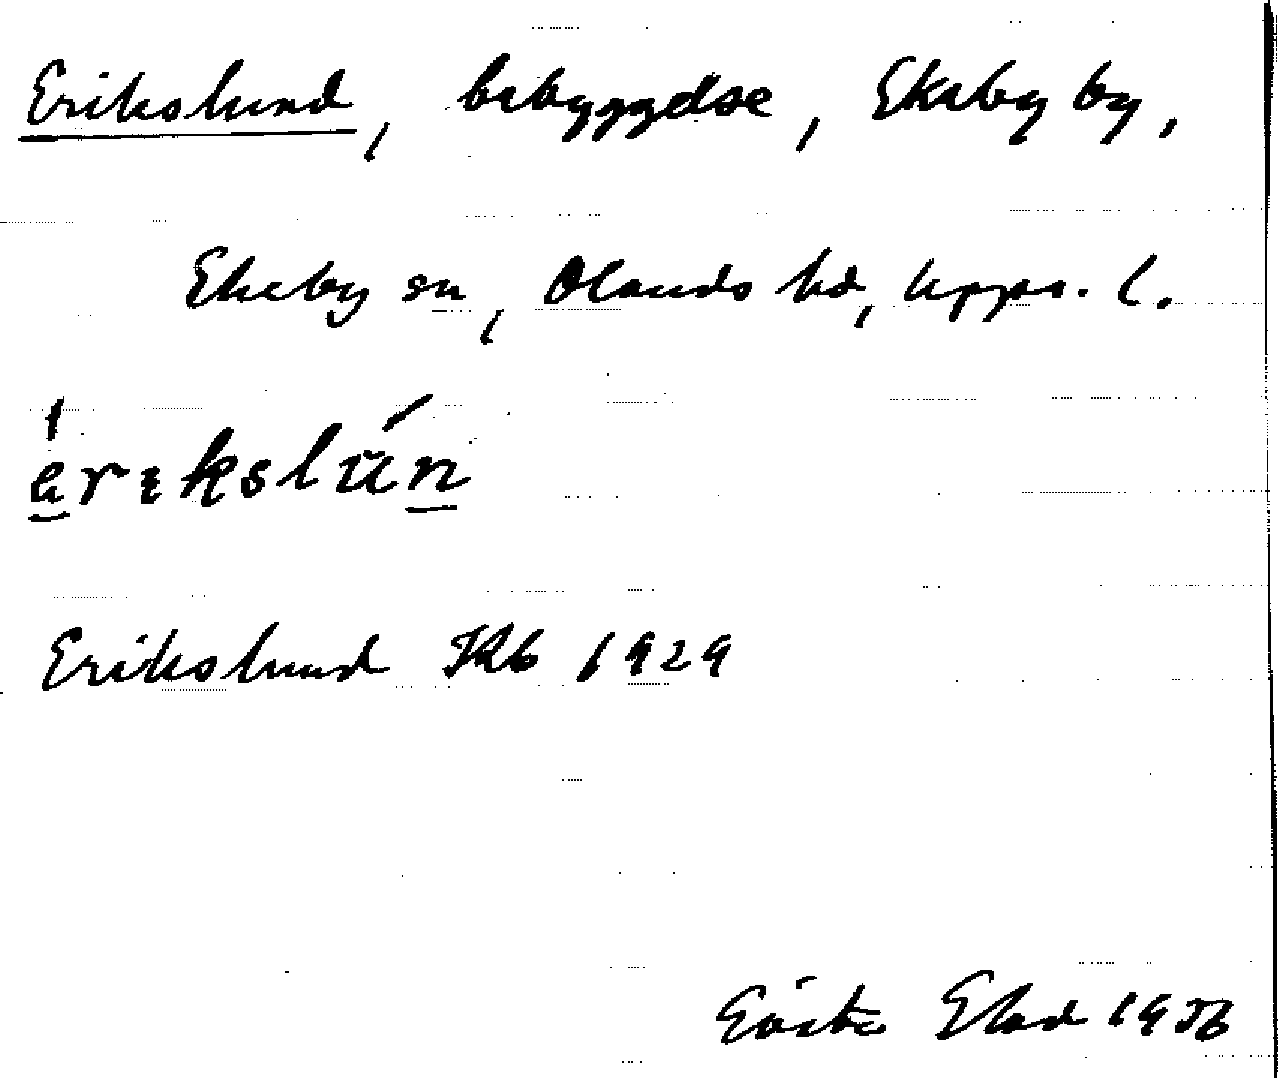 Erikslund, bebyggelse, Ekeby by,
Ekeby sn, Olands hd, Upps. l.
erikslun
Erikslund Kb 1929
Gösta 1956